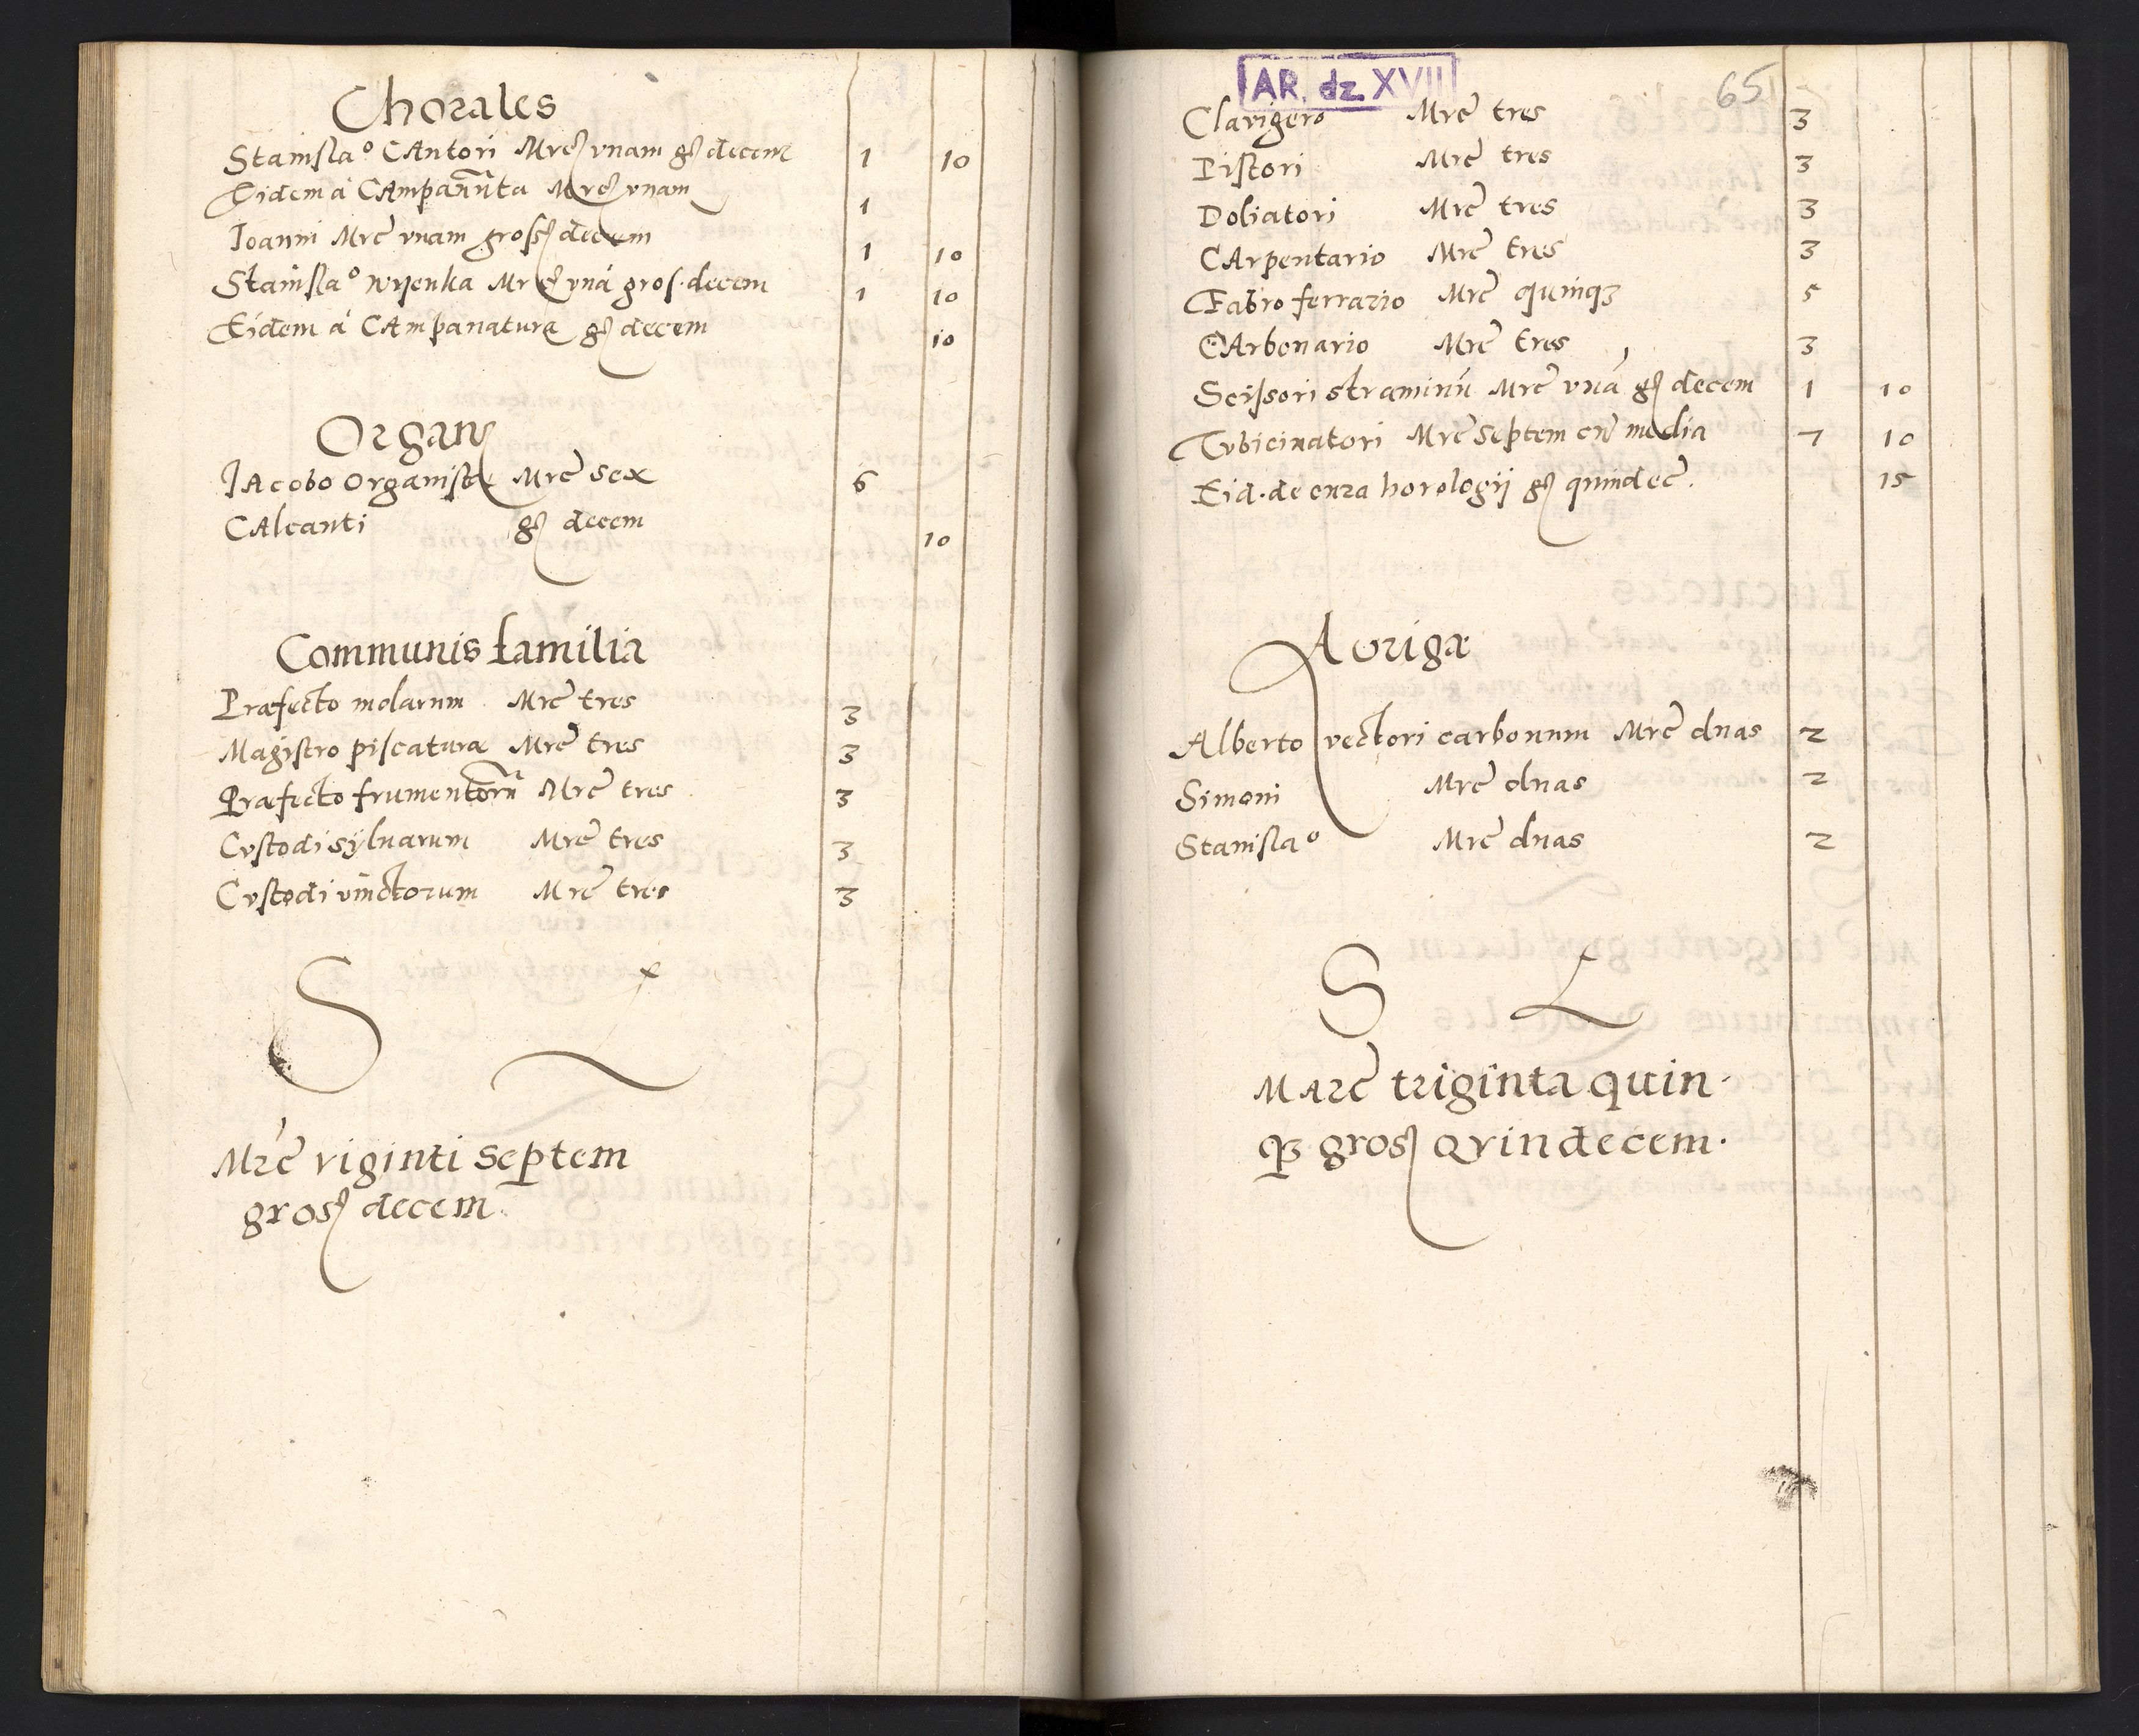 Chorales
Stanislao Cantori Mrc unam gs decem 1 10
Eidem á Campanata Mrc unam 1
Ioanni Mrc unam gross decem 1 10
Stanislao Wyenka Mrc uná gros. decem 1 10
Eidem á Campanatura gs decem 10
Organ
Iacobo Organistæ Mrc sex 6
Calcanti gs decem 10
Communis familia
Præfecto molarum Mrc tres 3
Magistro piscaturæ Mrc tres 3
Præfecto frumentorũ Mrc tres 3
Cvstodi sylvarum Mrc tres 3
Cvstodi vinctorum Mrc tres 3
S Lx
Mrc viginti septem
gros decem.
AR. dz. XVIII
65
Clavigero Mrc tres 3
Pistori Mrc tres 3
Doliatori Mrc tres 3
Carpentario Mrc tres 3
Fabro ferrario Mrc quinqꝫ 5
Carbonario Mrc tres 3
Scissori straminũ Mrc uná gs decem 1 10
Tvbicinatori Mrc septem cũ media 7 10
Eid. de cura horologij gs quindec. 15
Avrigæ
Alberto vectori carbonum Mrc duas 2
Simoni Mrc duas 2
Stanislao Mrc duas 2
S L
Marc triginta quin-
qꝫ gros qvindecem.